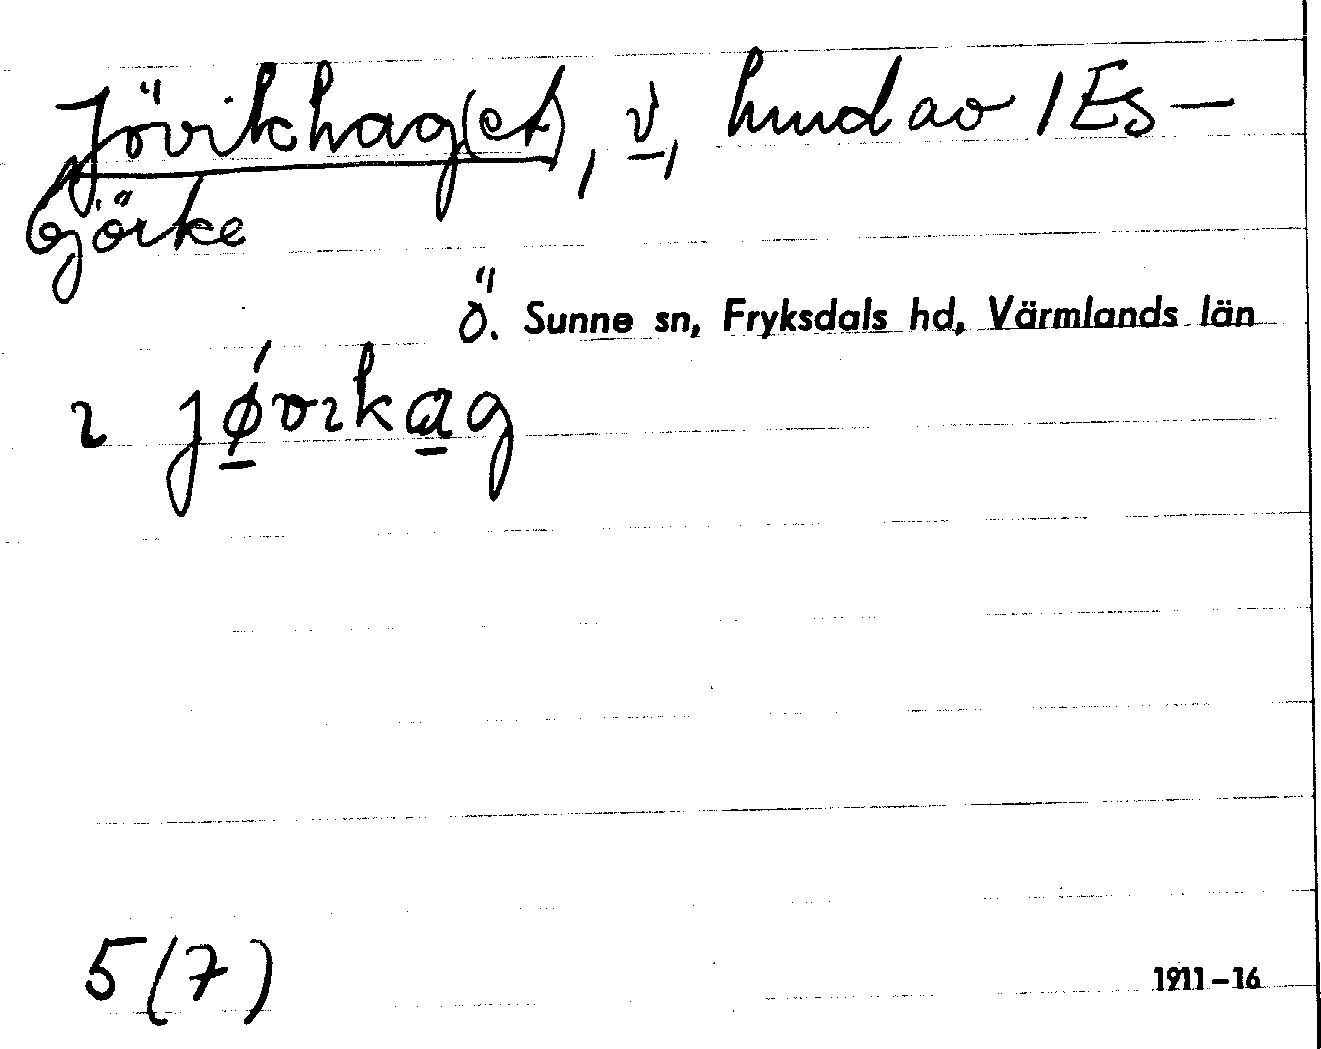 Jövikhag(et), v, hmd av 1 Es-
björke
Ö. Sunne sn, Fryksdals hd, Värmlands län
ɩ jǿ̱vɩka̱g
5(7)
1911–16